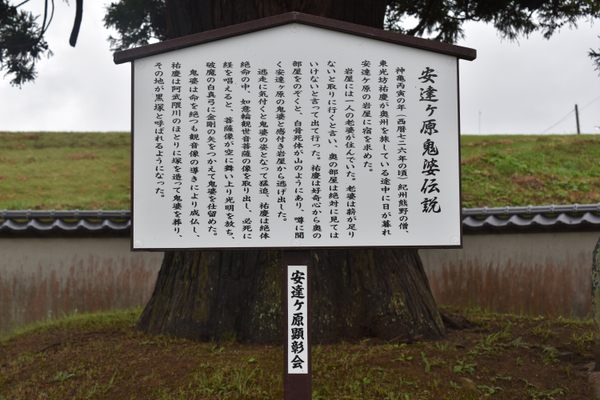 安達ヶ原鬼婆伝説
神亀丙寅の年(西暦七二六年の頃)紀州熊野の僧、
東光坊祐慶が奥州を旅している途中に日が暮れ
安達ヶ原の岩屋に宿を求めた。
岩屋には一人の老婆が住んでいた。老婆は薪が足り
ないと取りに行くと言い、奥の部屋は絶対に見ては
いけないと言って出て行った。祐慶は好奇心から奥の
部屋をのぞくと、白骨死体が山のようにあり、噂に聞
く安達ヶ原の鬼婆と感付き岩屋から逃げ出した。
逃走に気付くと鬼婆の姿となって猛追。祐慶は絶体
絶命の中、如意輪観世音菩薩の像を取り出し、必死に
経を唱えると、菩薩像が空に舞い上り光明を放ち、
破魔の白真弓に金剛の矢をつがえて鬼婆を仕留めた。
鬼婆は命を絶つも観音像の導きにより成仏し、
祐慶は阿武隈川のほとりに塚を造って鬼婆を葬り、
その地が黒塚と呼ばれるようになった。
安達ヶ原顕彰会